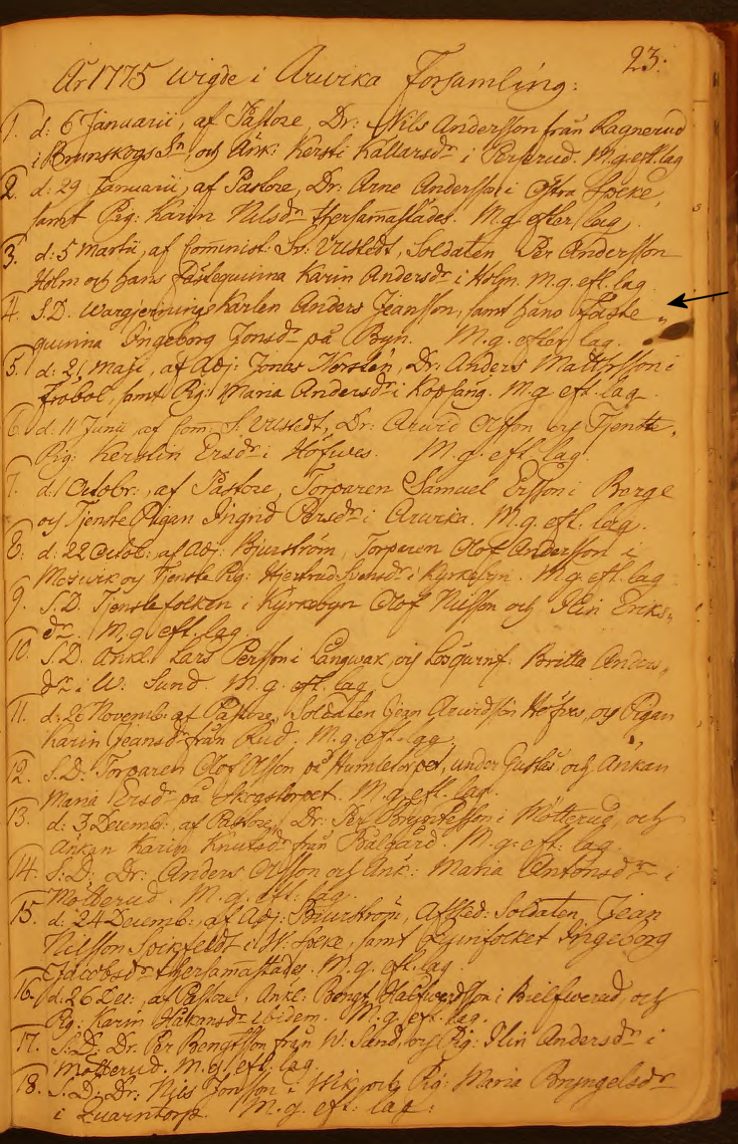 23.
År 1775 wigde i Arwika Församling:
1. d: 6 Januarii, af Pastore, Dr: Nils Andersson från Ragnerud
i Brunskogs Sn, och Änk: Kersti Kallarsdr i Perserud. M.g.eft.lag
2. d: 29 Januarii, af Pastore, Dr: Arne Andersson i Östra Speke,
samt Pig: Karin Nilsdr thersammastädes. M.g. efter lag,
3. d: 5 Martii, af Comminist: Sr: Ullstedt, Soldaten Per Andersson
Holm och hans Fästequinna Karin Andersdr i Holm. M.g.eft.lag.
4. S.D. Wargjernings Karlen Anders Jeansson, samt hans Fäste„
quinna Ingeborg Jonsdr på Byn. M.g. efter lag.
5. d: 21 Maji, af Adj: Jonas Norstén, Dr: Anders Mattsson i
Fråbol, samt Pig: Maria Andersdr i Kopsäng. M.g eft. lag
6. d: 11 Junii, af Com: S. Ullstedt, Dr: Arwid Olsson och Tjenste„
Pig: Kerstin Ersdr i Höfwes. M.g. eft. lag.
7. d: 1 Octobr:, af Pastore, Torparen Samuel Ersson i Berge
och Tjenste Pigan Ingrid Persdr i Arwika. M.g. eft. lag.
8. d: 22 Octob:, af Adj: Bjurström, Torparen Olof Andersson i
och Tjenste Pig: Hjertrud Svensdr i Kyrkebyn. M.g. eft. lag
9. S.D. Tjenstefolken i Kyrkebyn Olof Nilsson och Elin Eriks„
dr. M.g. eft. lag.
10. S.D. Ankl: Lars Persson i Långwak, och Britta Anders„
dr i W. Sund. M.g. eft. lag
11. d: 26 Novemb: af Pastore, Soldaten Jean Arwidsson Höfwes, och Pigan
Karin Jeansdr från Rud. M.g. eft. lag
12. S.D. Torparen Olof Olsson på Humletorpet, under och Änkan
Maria Ersdr på Skogstorpet. M.g. eft. lag.
13. d: 3 Decemb:, af Pastore, Dr: Per Bryntesson i Mötterud, och
Änkan Karin Knutsdr från Bålgård. M.g. eft: lag.
14. S.D. Dr: Anders Olsson och Änk: Maria Antonsdr i
Mötterud. M.g. eft: lag.
15. d: 24 Decemb:, af Adj: Bjurström, Afsked: Soldaten Jean
Nilsson Spikfeldt i W. Speke, samt Quinfolket Ingeborg
Jacobsdr thersammastädes. M.g. eft. lag.
16. d: 26 Dec:, af Pastore, Ankl: Bengt Halfwardsson i Bielfwerud och
Pig: Karin Håkansdr ibidem. M.g. eft. lag.
17. S.D. Dr: Per Bengtsson från W: Sund, och Pig: Elin Andersdr i
Mötterud. M.g. eft. lag.
18. S.D. Dr: Nils Jonsson i Wik, och Pig: Maria Bryngelsdr
i Quarntorp. M.g. eft: lag: